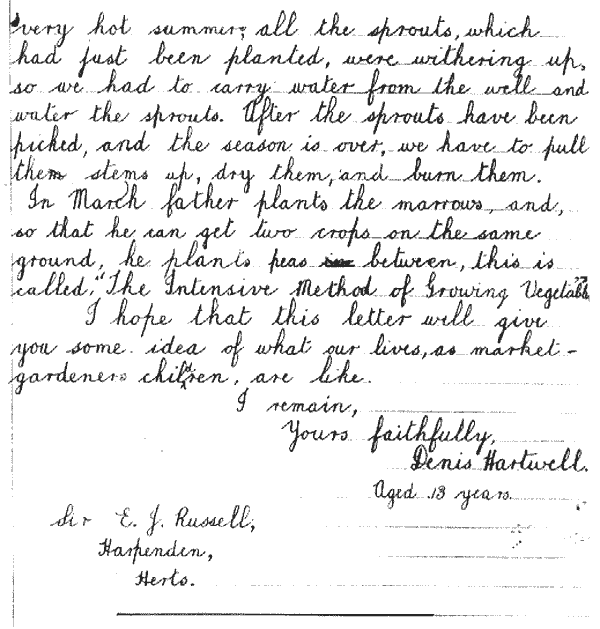 very hot summer, all the sprouts, which
had just been planted, were withering up,
so we had to carry water from the well and
water the sprouts. After the sprouts have been
picked, and the season is over, we have to pull
them stems up, dry them, and burn them.
In March father plants the marrows, and,
so that he can get two crops on the same
ground, he plants peas between, this is
called, "The Intensive Method of Growing Vegetables"
I hope that this letter will give
you some idea of what our lives, as market-
gardeners children, are like.
I remain,
Yours faithfully,
Denis Hartwell.
Aged 13 years.
Sir E. J. Russell,
Harpenden,
Herts.